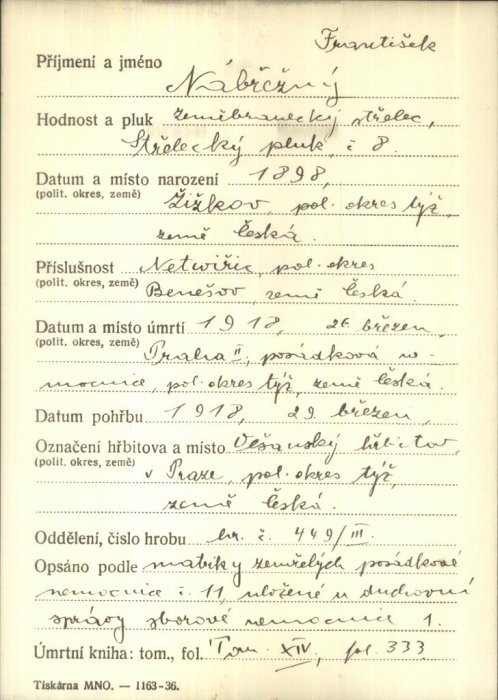 František
Příjmení a jméno Nábřežný
Hodnost a pluk zeměbranecký střelec,
Střelecký pluk, č 8.
Datum a místo narození 1898,
(polit. okres, země) Žižkov, pol. okres týž,
země česká.
Příslušnost Netwiřic, pol. okres
(polit. okres, země) Benešov, země česká.
Datum a místo úmrtí 1918, 26. březen,
(polit. okres, země) Praha II, posádková ne-
mocnice, pol. okres týž, země česká.
Datum pohřbu 1918, 29. březen,
Označení hřbitova a místo Olšanský hřbitov,
(polit. okres, země) v Praze, pol. okres týž,
země česká.
Oddělení, číslo hrobu hr. č. 449/III.
Opsáno podle matriky zemřelých posádkové
nemocnice č. 11, uložené u duchovní
správy sborové nemocnice 1.
Úmrtní kniha: tom., fol. Tom. XIV, fol. 333.
Tiskárna MNO. — 1163-36.